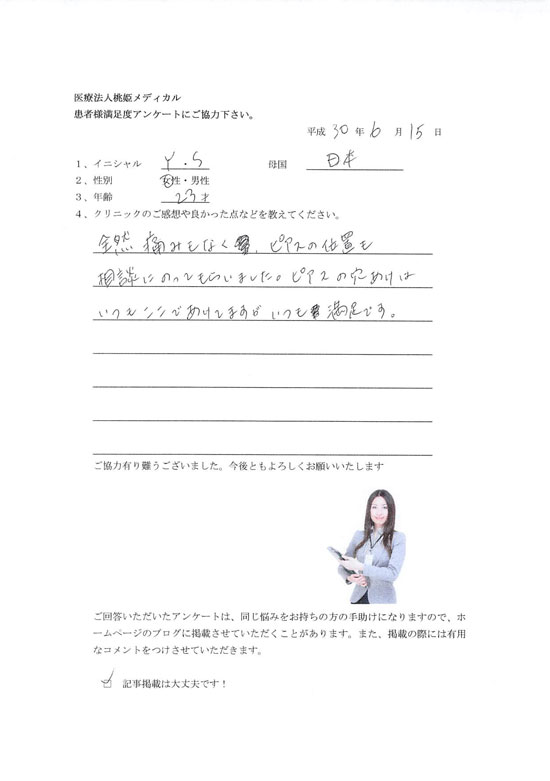 医療法人桃姫メディカル
患者様満足度アンケートにご協力下さい。
平成 30 年 6 月 15 日
1、イニシャル Y.S 母国 日本
2、性別 女性・男性
3、年齢 23才
4、クリニックのご感想や良かった点などを教えてください。
全然痛みもなく、ピアスの位置も
相談にのってもらいました。ピアスの穴あけは
いつもココであけてますがいつも満足です。
ご協力有り難うございました。今後ともよろしくお願いいたします
ご回答いただいたアンケートは、同じ悩みをお持ちの方の手助けになりますので、ホ
ームページのブログに掲載させていただくことがあります。また、掲載の際には有用
なコメントをつけさせていただきます。
☑ 記事掲載は大丈夫です！